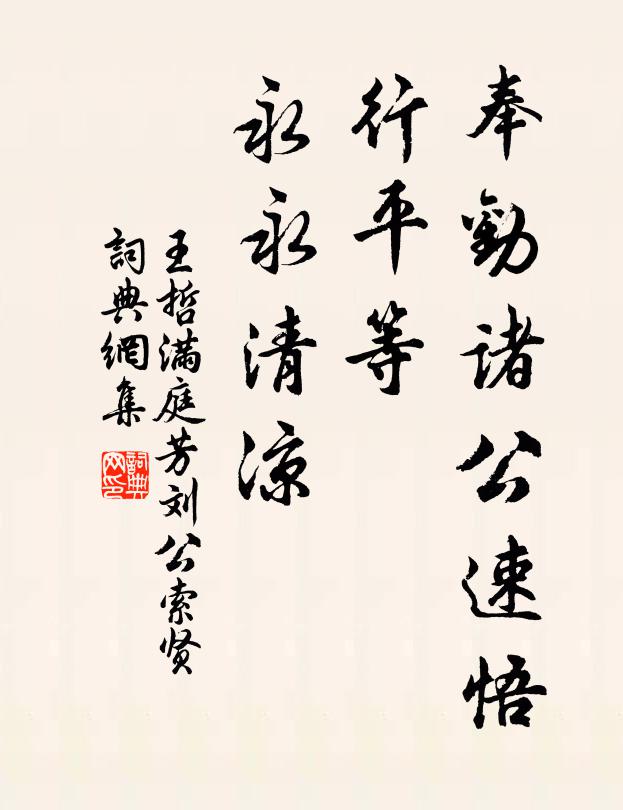 奉勸諸公速悟
行平等
永永清涼
王哲滿庭芳刘公索贤
詞典網集
詞典
网印